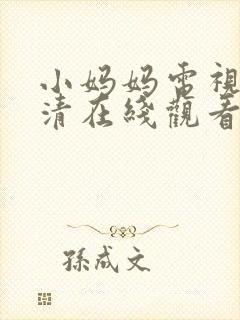 小妈妈电視
清在綫觀看
孫成文